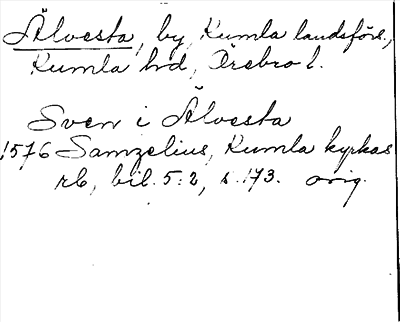 Älvesta, by, Kumla landsförs.,
Kumla hd, Örebro l.
Sven i Älvesta
1576 Samzelius, Kumla kyrkas
rb, bil. 5:2, s. 173. orig.